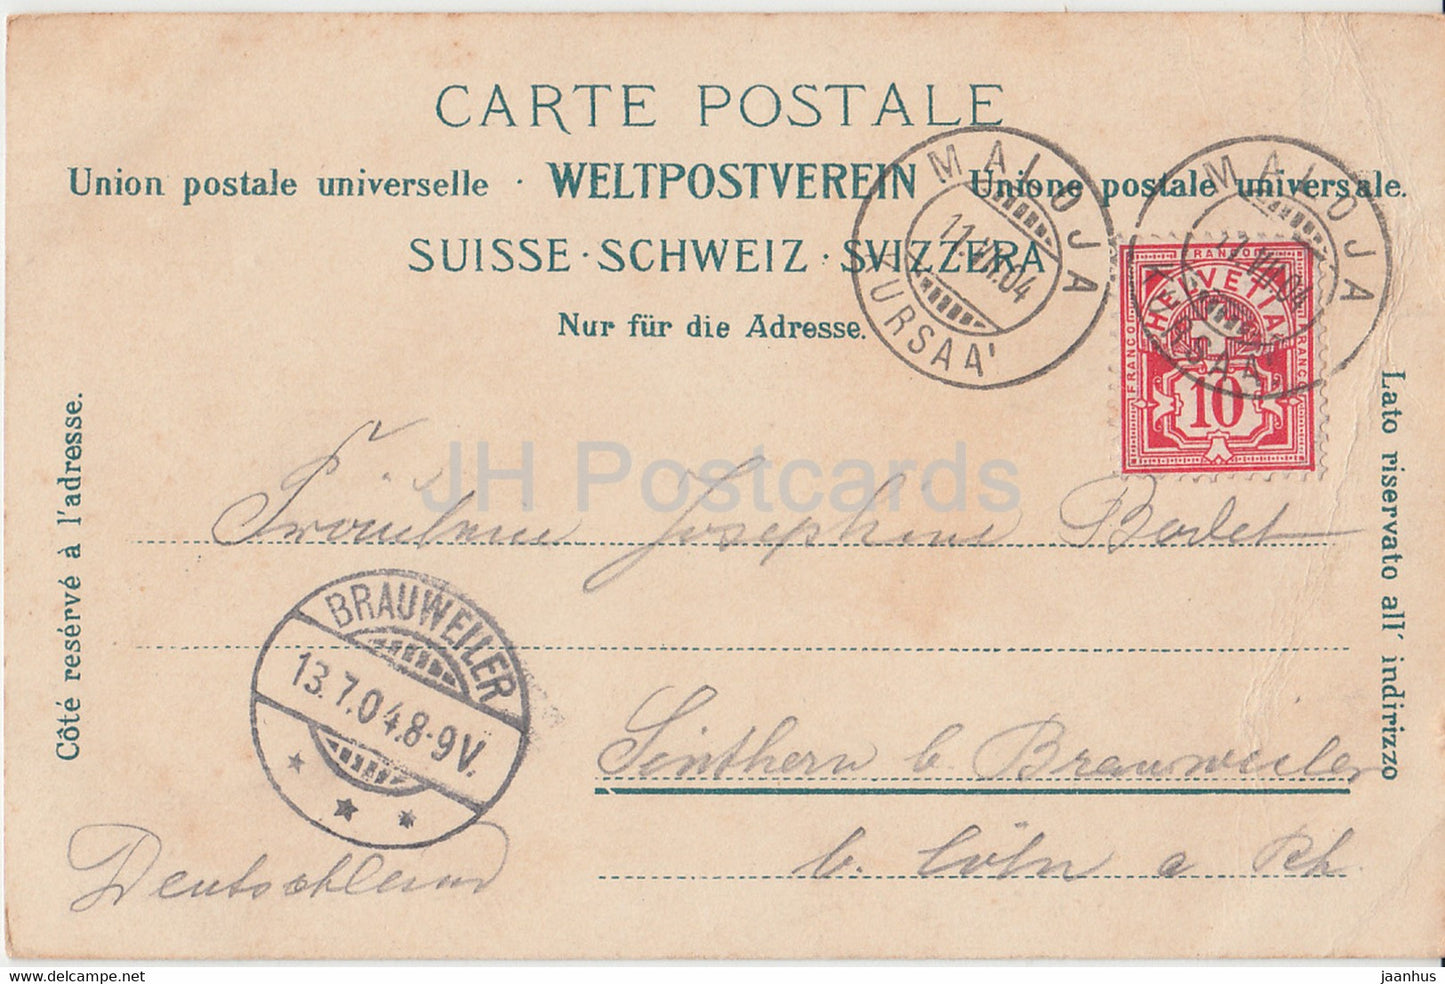 CARTE POSTALE
Union postale universelle · WELTPOSTVEREIN · Unione postale universale.
SUISSE · SCHWEIZ · SVIZZERA
Nur für die Adresse.
Côté resérvé à l'adresse.
Lato riservato all' indirizzo
MALOJA
11.VII.04
KURSAAL
MALOJA
11.VII.04
KURSAAL
FRANCO
HELVETIA
FRANCO
FRANCO
10
JH Postcards
Fräulein Josephine
BRAUWEILER
13.7.04.8-9V.
Sinthern b. Brauweiler
b. Cöln a Rh.
Deutschland
www.delcampe.net
jaanhus